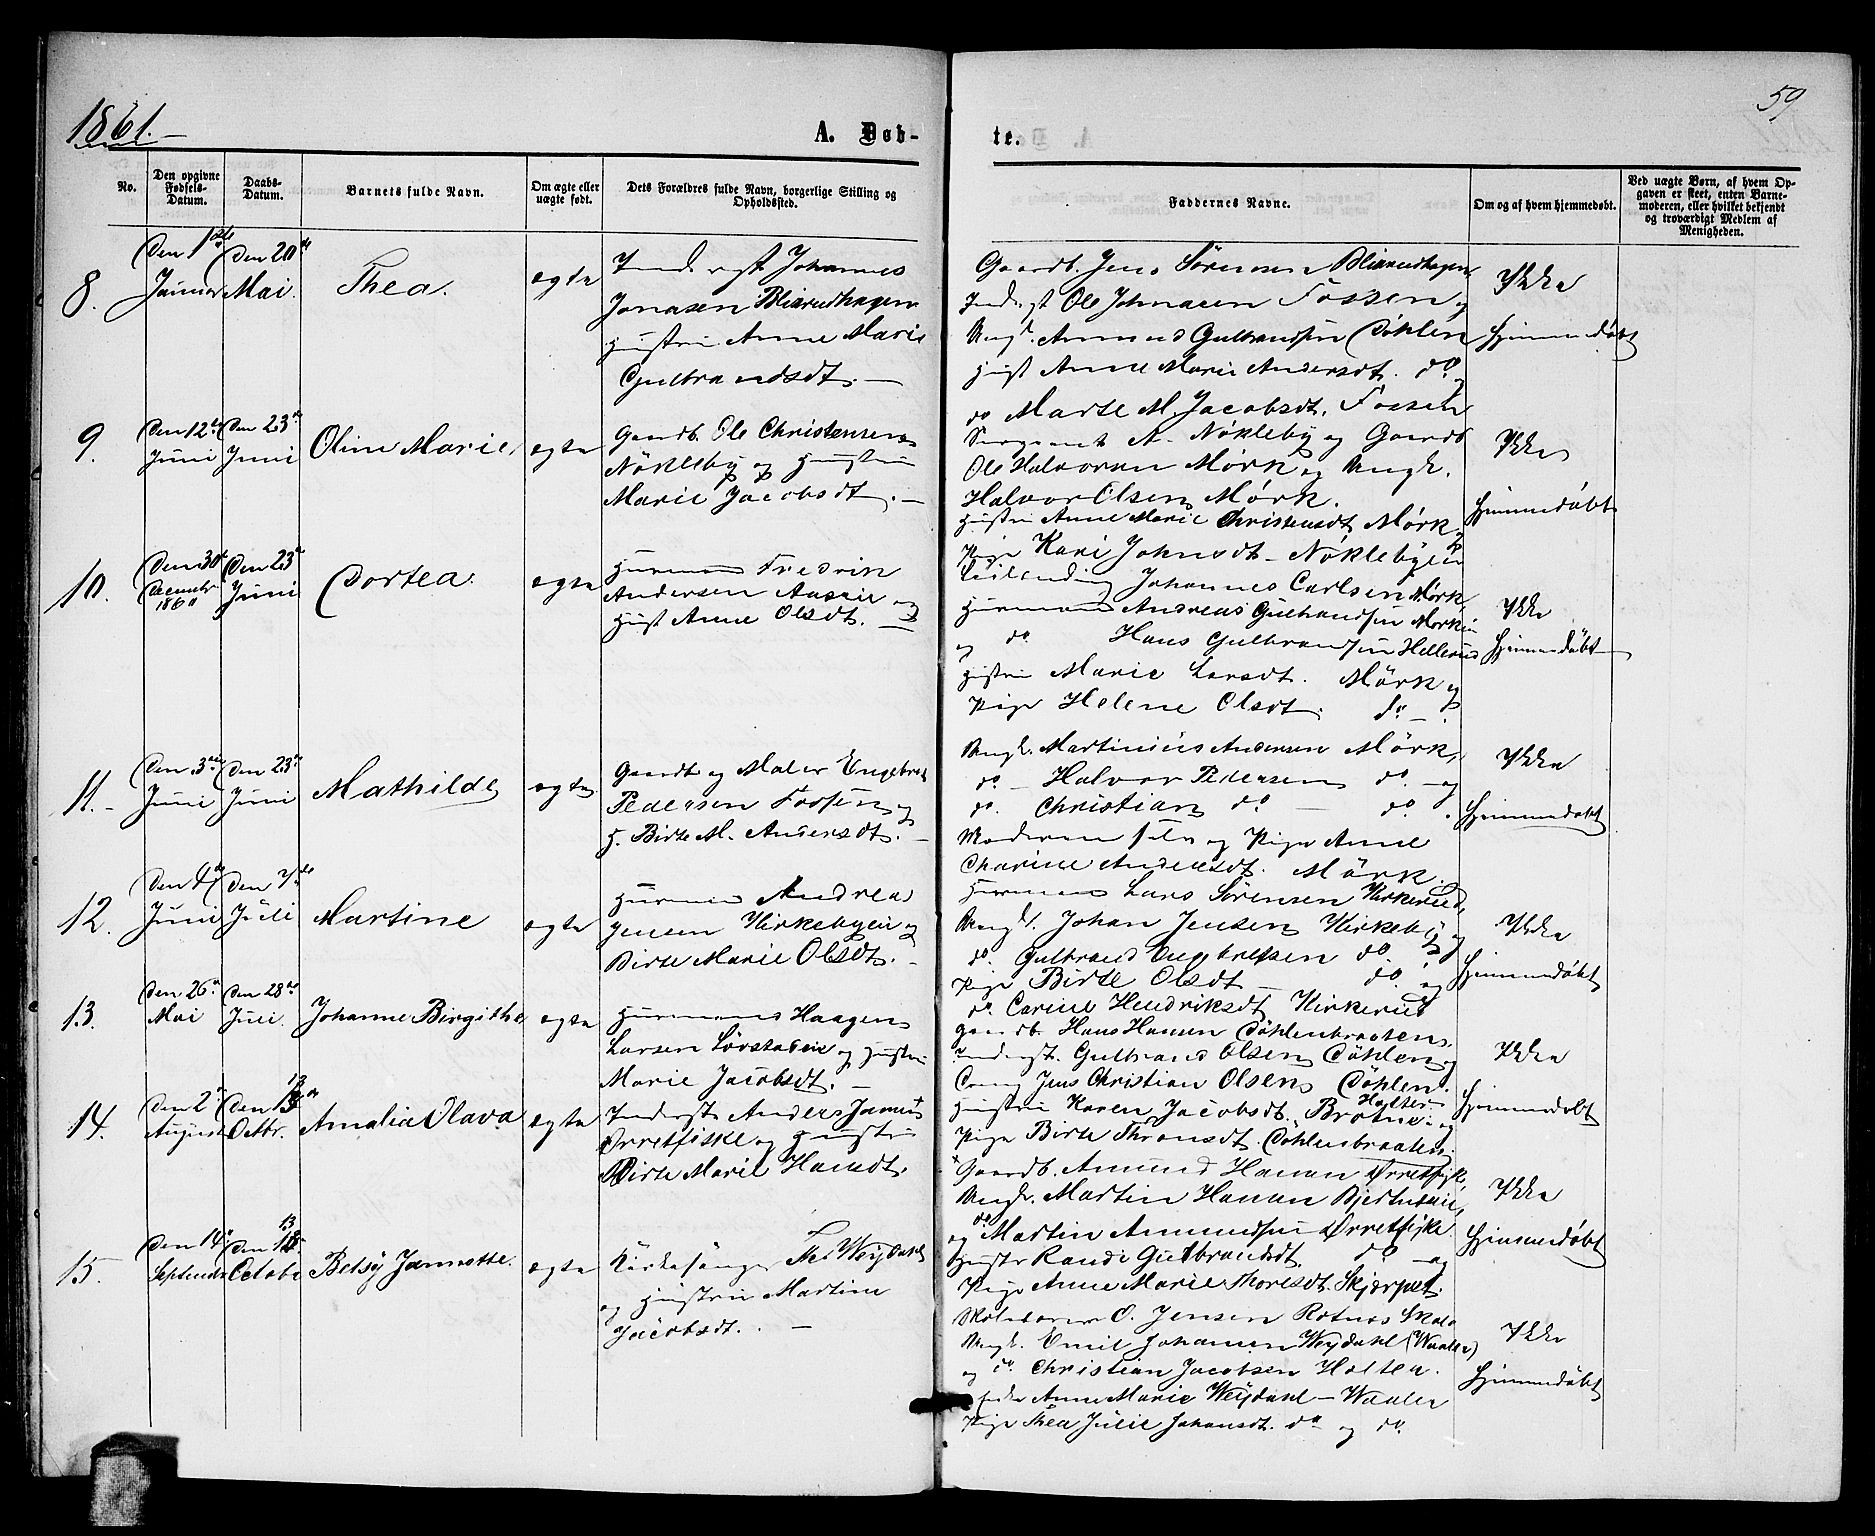 1861.
59
A. Døb-
te.
No.
Den opgivne Fødsels-Datum.
Daabs-Datum.
Barnets fulde Navn.
Om ægte eller uægte født.
Dets Forældres fulde Navn, borgerlige Stilling og Opholdssted.
Faddernes Navne.
Om og af hvem hjemmedøbt.
Ved uægte Børn, af hvem Opgaven er skeet, enten Barnemoderen, eller hvilket bekjendt og troværdigt Medlem af Menigheden.
8.
Den 1ste Januar
Den 20de Mai.
Thea.
ægte
Inderst Johannes
Jonasen
Hustru Anne Marie
Gulbrandsdt. —
Gaardb. Jens Sörensen
Inderst Ole Johnasen Fossen og
Ungk. Amund Gulbrandsen Döhlen
Hust Anne Marie Andersdt. do. og
do Marte M. Jacobsdt. Fossen
Ikke
hjemmedøbt
9.
Den 12te Juni
Den 23de Juni
Oline Marie
ægte
Gaardb. Ole Christensen
Nökleby og Hustru
Marie Jacobsdt. —
Sergeant A. Nökleby og Gaardb
Ole Halvorsen Mörk og Ungk.
Halvor Olsen Mörk.
Hustru Anne Marie Christensdt. Mörk og
Pige Kari Johnsdt — Nöklebyeie
Ikke
hjemmedøbt
10.
Den 30t December 1860
Den 23de Juni
Dortea.
ægte
Huusmand Fredrik
Andersen Aaseie og
Hust Anne Olsdt. —
Leilending Johannes Carlsen Mörk,
Huusmand Andreas Gulbrandsen Mörkeie
og do Hans Gulbrandsen Hellerud
Hustru Marie Larsdt. Mörk og
Pige Helene Olsdt. do —.
Ikke
hjemmedøbt
11.
Den 3die Juni
Den 23de Juni
Mathilde
ægte
Gaardb og Maler Engebret
Pedersen Fossen og
H. Birte M. Andersdt. —
Ungk. Martinius Andersen Mörk,
do — Halvor Pedersen do. — og
do. Christian do — do.
Moderen selv og Pige Anne
Charine Andersdt. Mörk.
Ikke
hjemmedøbt
12.
Den 4de Juni
Den 7de Juli
Martine
ægte
Huusmand Andreas
Jensen Kirkebyeie og
Birte Marie Olsdt. —
Huusmand Lars Sörensen Kirkerud,
Ungk. Johan Jensen Kirkeby og
do. Gulbrand Engebretsen do.
Pige Birte Olsdt — do. og
do. Carine Hendriksdt Kirkerud
Ikke
hjemmedøbt
13.
Den 26de Mai
Den 28de Juli.
Johanne Birgithe
ægte
Huusmand Haagen
Larsen og Hustru
Marie Jacobsdt. —
Gaardb. Hans Hansen Döhlenbraaten,
Inderst. Gulbrand Olsen Döhlen og
Jens Christian Olsen Döhlen.
Hustru Karen Jacobsdt. Holter Brötne. og
Pige Birte Thronsdt. Döhlenbraaten.
Ikke
hjemmedøbt
14.
Den 2den August
Den 13de Octbr.
Amalia Olava
ægte
Inderst Anders
Ørretfiske og Hustru
Birte Marie Hansdt.
Gaardb. Amund Hansen Ørretfisk,
Ungk. Martin Hansen
og do Martin Amundsen Ørretfiske
Hustr Randi Gulbrandsdt. do — og
Pige Anne Marie Thoresdt. Skjerpet.
Ikke
hjemmedøbt
15.
Den 14de September
Den 13de October
Betsy Jannette.
ægte
Kirkesanger Weydahl
og Hustru Martine
Jacobsdt. . —
O. Jensen Rotnes Skole
Ungk. Emil Johansen Weydahl (Waaler)
og do. Christian Jacobsen Holter.
Anne Marie Weydahl — Waaler
Pige Thea Julie Johansdt. do og do.
Ikke
hjemmedøbt